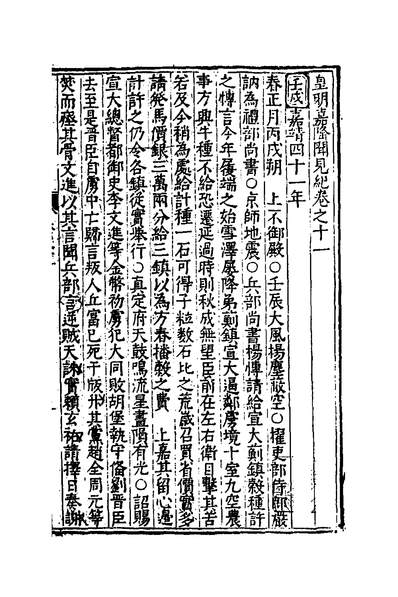 皇明嘉隆聞見紀卷之十一
壬戌嘉靖四十一年
春正月丙戌朔 上不御殿○壬辰大風揚塵蔽空○擢吏部侍郎嚴
訥為禮部尚書○京師地震○兵部尚書楊博請給宣大薊鎮穀種許
之博言今年履端之始雪澤嚴降第薊鎮宣大逼鄰虜境十室九空農
事方興牛種不給恐遷延過時則秋成無望臣前在左右衛目擊其苦
若及今稍為處給計種一石可得子粒數石比之荒歲召買省價實多
請発馬價銀三萬兩分給三鎮以為方春播穀之費 上嘉其留心邊
計許之仍令各鎮從實舉行○真定府天鼓鳴流星晝隕有光○詔賜
宣大總督都御史李文進等金幣初虜犯大同敗胡堡執守備劉晋臣
去至是晋臣自虜中亡歸言叛人丘富已死于板升其黨趙全周元等
焚而瘞其骨文進以其言聞兵部言逆賊天誅實賴玄祐請擇日奏謝